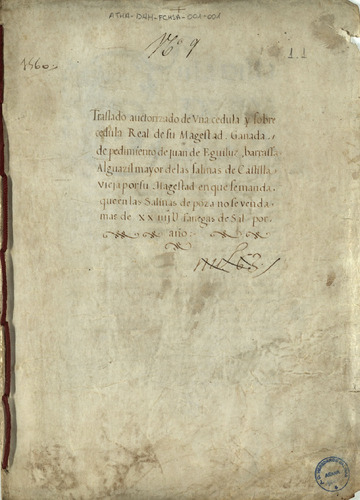 ATHA-DAH-FCHSA-001-001
Nº 9
1.1
1560
Traslado auctorizado de Vna cedula y sobre
cedula Real de su Magestad. Ganada.
de pedimiento de Juan de Eguiluz, barrassa
Alguazil mayor de las salinas de Castilla
Vieja por su Magestad en que se manda
que en las Salinas de poza no se venda
mas de XX iiij U fanegas de Sal por
año.
ATHA